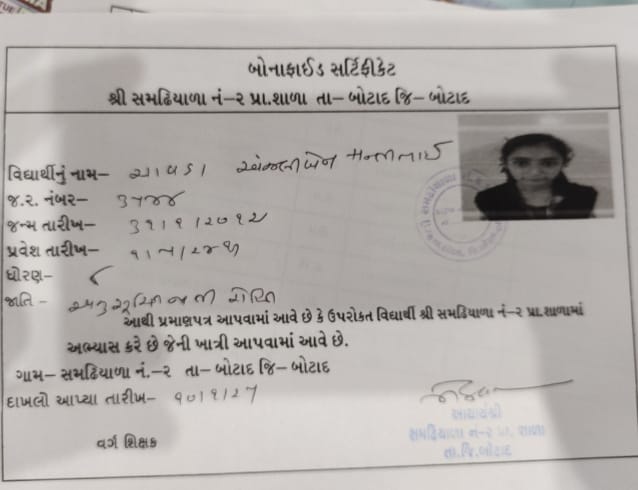 બોનાફાઈડ સર્ટિફીકેટ
શ્રી સમઢિયાળા નં-૨ પ્રા.શાળા તા- બોટાદ જિ- બોટાદ
વિદ્યાર્થીનું નામ- ચાવડા અંજલીબેન
જ.ર. નંબર-
જન્મ તારીખ- ૩૧/૧/૨૦૧૨
પ્રવેશ તારીખ-
ધોરણ- ૮
જાતિ - અનુસૂચિત જાતી
આથી પ્રમાણપત્ર આપવામાં આવે છે કે ઉપરોકત વિદ્યાર્થી શ્રી સમઢિયાળા નં-૨ પ્રા.શાળામાં
અભ્યાસ કરે છે જેની ખાત્રી આપવામાં આવે છે.
ગામ- સમઢિયાળા નં.-૨ તા- બોટાદ જિ- બોટાદ
દાખલો આપ્યા તારીખ-
આચાર્યશ્રી
વર્ગ શિક્ષક
સમઢિયાળા નં-૨ પ્રા. શાળા
તા.જિ.બોટાદ